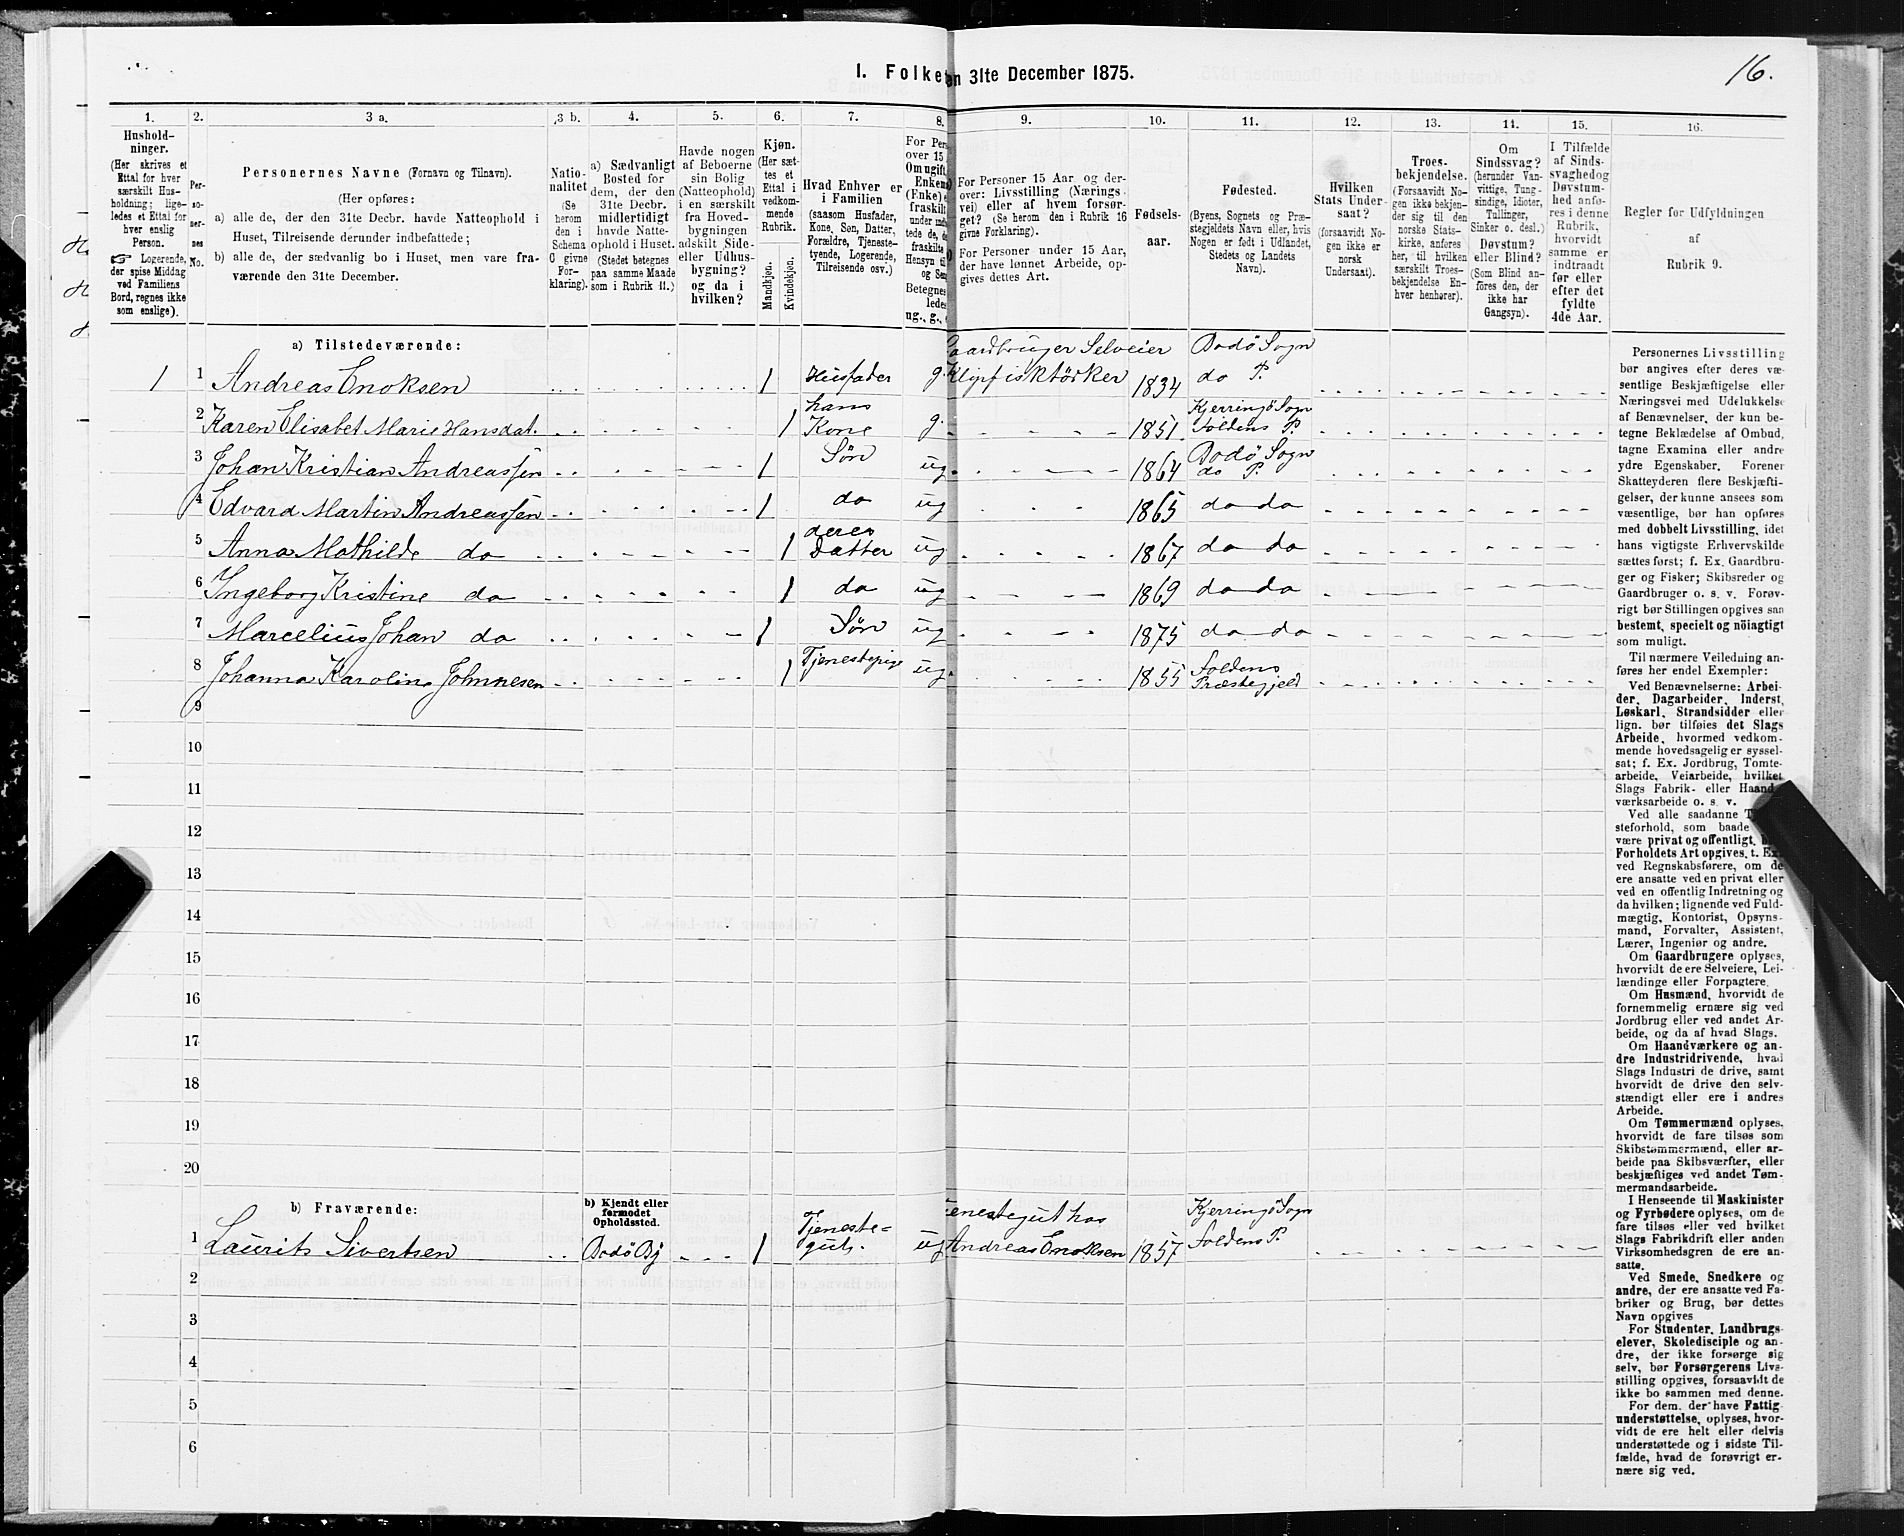 I. Folke
en 31te December 1875.
16.
1.
2.
3 a.
3 b.
4.
5.
6.
7.
8.
9.
10.
11.
12.
13.
14.
15.
16.
Hushold-
ninger.
(Her skrives et
Ettal for hver
særskilt Hus-
holdning; lige-
ledes et Ettal for
hver enslig
Person.
☞ Logerende,
der spise Middag
ved Familiens
Bord, regnes ikke
som enslige).
Per-
so-
ner-
nes
No.
Personernes Navne (Fornavn og Tilnavn).
(Her opføres:
a) alle de, der den 31te Decbr. havde Natteophold i
Huset, Tilreisende derunder indbefattede;
b) alle de, der sædvanlig bo i Huset, men vare fra-
værende den 31te December.
Natio-
nalitet
(Se
herom
den i
Schema
C givne
For-
klaring).
a) Sædvanligt
Bosted for
dem, der den
31te Decbr.
midlertidigt
havde Natte-
ophold i Huset.
(Stedet betegnes
paa samme Maade
som i Rubrik 11.)
Havde nogen
af Beboerne
sin Bolig
(Natteophold)
i en særskilt
fra Hoved-
bygningen
adskilt Side-
eller Udhus-
bygning?
og da i
hvilken?
Kjøn.
(Her sæt-
tes et
Ettal i
vedkom-
mende
Rubrik.
Mandkjøn.
Kvindekjøn.
Hvad Enhver er
i Familien
(saasom Husfader,
Kone, Søn, Datter,
Forældre, Tjeneste-
tyende, Logerende,
Tilreisende osv.)
For Per
over 15
Om ugift,
Enkem
(Enke) e
fraskilt
under
tede de,
fraskilte
Hensyn til
og Sen
Betegnes
ledes
ug., g.,
For Personer 15 Aar og der-
over: Livsstilling (Nærings-
vei) eller af hvem forsør-
get? (Se herom den i Rubrik 16
givne Forklaring).
For Personer under 15 Aar,
der have lønnet Arbeide, op-
gives dettes Art.
Fødsels-
aar.
Fødested.
(Byens, Sognets og Præ-
stegjeldets Navn eller, hvis
Nogen er født i Udlandet,
Stedets og Landets
Navn).
Hvilken
Stats Under-
saat?
(forsaavidt No-
gen ikke er
norsk
Undersaat).
Troes-
bekjendelse.
(Forsaavidt No-
gen ikke bekjen-
der sig til den
norske Stats-
kirke, anføres
her, til hvilken
særskilt Troes-
bekjendelse En-
hver henhører).
Om
Sindssvag?
(herunder Van-
vittige, Tung-
sindige, Idioter,
Tullinger,
Sinker o. desl.)
Døvstum?
eller Blind?
(Som Blind an-
føres den, der
ikke har
Gangsyn).
I Tilfælde
af Sinds-
svaghed og
Døvstum-
hed anfø-
res i denne
Rubrik,
hvorvidt
samme er
indtraadt
før eller
efter det
fyldte
4de Aar.
Regler for Udfyldningen
af
Rubrik 9.
a) Tilstedeværende:
1 1 Andreas Enoksen 1 Husfader g. Gaardbruger Selveier Klipfisktörker 1834 Bodö Sogn do P.
2 Karen Elisabet Marie Hansdat. 1 hans Kone g. 1851 Kjerringö Sogn Foldens P.
3 Johan Kristian Andreassen 1 Sön ug. 1864 Bodö Sogn do P.
4 Edvard Martin Andreassen 1 do ug 1865 do do
5 Anna Mathilde do 1 deres Datter ug 1867 do do
6 Ingeborg Kristine do 1 do ug 1869 do do
7 Marcelius Johan do 1 Sön ug 1875 do do
8 Johanna Karoline Johnnesen 1 Tjenestepige ug. 1855 Foldens Præstegjeld
9
10
11
12
13
14
15
16
17
18
19
20
b) Fraværende:
b) Kjendt eller
formodet
Opholdssted.
1 Laurits Sivertsen Bodö By 1 Tjeneste-gut. ug Tjenestegut hos Andreas Enoksen 1857 Kjerringö Sogn Foldens P.
2
3
4
5
6
Personernes Livsstilling
bør angives efter deres væ-
sentlige Beskjæftigelse eller
Næringsvei med Udelukkelse
af Benævnelser, der kun be-
tegne Beklædelse af Ombud,
tagne Examina eller andre
ydre Egenskaber. Forener
Skatteyderen flere Beskjæfti-
gelser, der kunne ansees som
væsentlige, bør han opføres
med dobbelt Livsstilling, idet
hans vigtigste Erhvervskilde
sættes først; f. Ex. Gaardbru-
ger og Fisker; Skibsreder og
Gaardbruger o. s. v. Forøv-
rigt bør Stillingen opgives saa
bestemt, specielt og nöiagtigt
som muligt.
Til nærmere Veiledning an-
føres her endel Exempler:
Ved Benævnelserne: Arbei-
der, Dagarbeider, Inderst,
Løskarl, Strandsidder eller
lign. bør tilføies det Slags
Arbeide, hvormed vedkom-
mende hovedsagelig er syssel-
sat; f. Ex. Jordbrug, Tomte-
arbeide, Veiarbeide, hvilket
Slags Fabrik- eller Haand-
værksarbeide o. s. v.
Ved alle saadanne
steforhold, som baade
være privat og offentligt,
Forholdets Art opgives, t. Ex.
ved Regnskabsførere, om de
ere ansatte ved en privat eller
ved en offentlig Indretning og
da hvilken; lignende ved Fuld-
mægtig, Kontorist, Opsyns-
mand, Forvalter, Assistent,
Lærer, Ingeniør og andre.
Om Gaardbrugere oplyses,
hvorvidt de ere Selveiere, Lei-
lændinge eller Forpagtere.
Om Husmænd, hvorvidt de
fornemmelig ernære sig ved
Jordbrug eller ved andet Ar-
beide, og da af hvad Slags.
Om Haandværkere og an-
dre Industridrivende, hvad
Slags Industri de drive, samt
hvorvidt de drive den selv-
stændigt eller ere i andres
Arbeide.
Om Tømmermænd oplyses,
hvorvidt de fare tilsøs som
Skibstømmermænd, eller ar-
beide paa Skibsværfter, eller
beskjæftiges ved andet Tøm-
mermandsarbeide.
I Henseende til Maskinister
og Fyrbødere oplyses, om de
fare tilsøs eller ved hvilket
Slags Fabrikdrift eller anden
Virksomhedsgren de ere an-
satte.
Ved Smede, Snedkere og
andre, der ere ansatte ved Fa-
briker og Brug, bør dettes
Navn opgives
For Studenter, Landbrugs-
elever, Skoledisciple og an-
dre, der ikke forsørge sig
selv, bør Forsørgerens Livs-
stilling opgives, forsaavidt de
ikke bo sammen med denne.
For dem, der have Fattig-
understøttelse, oplyses, hvor-
vidt de ere helt eller delvis
understøttede og i sidste Til-
fælde, hvad de forøvrigt er-
nære sig ved.